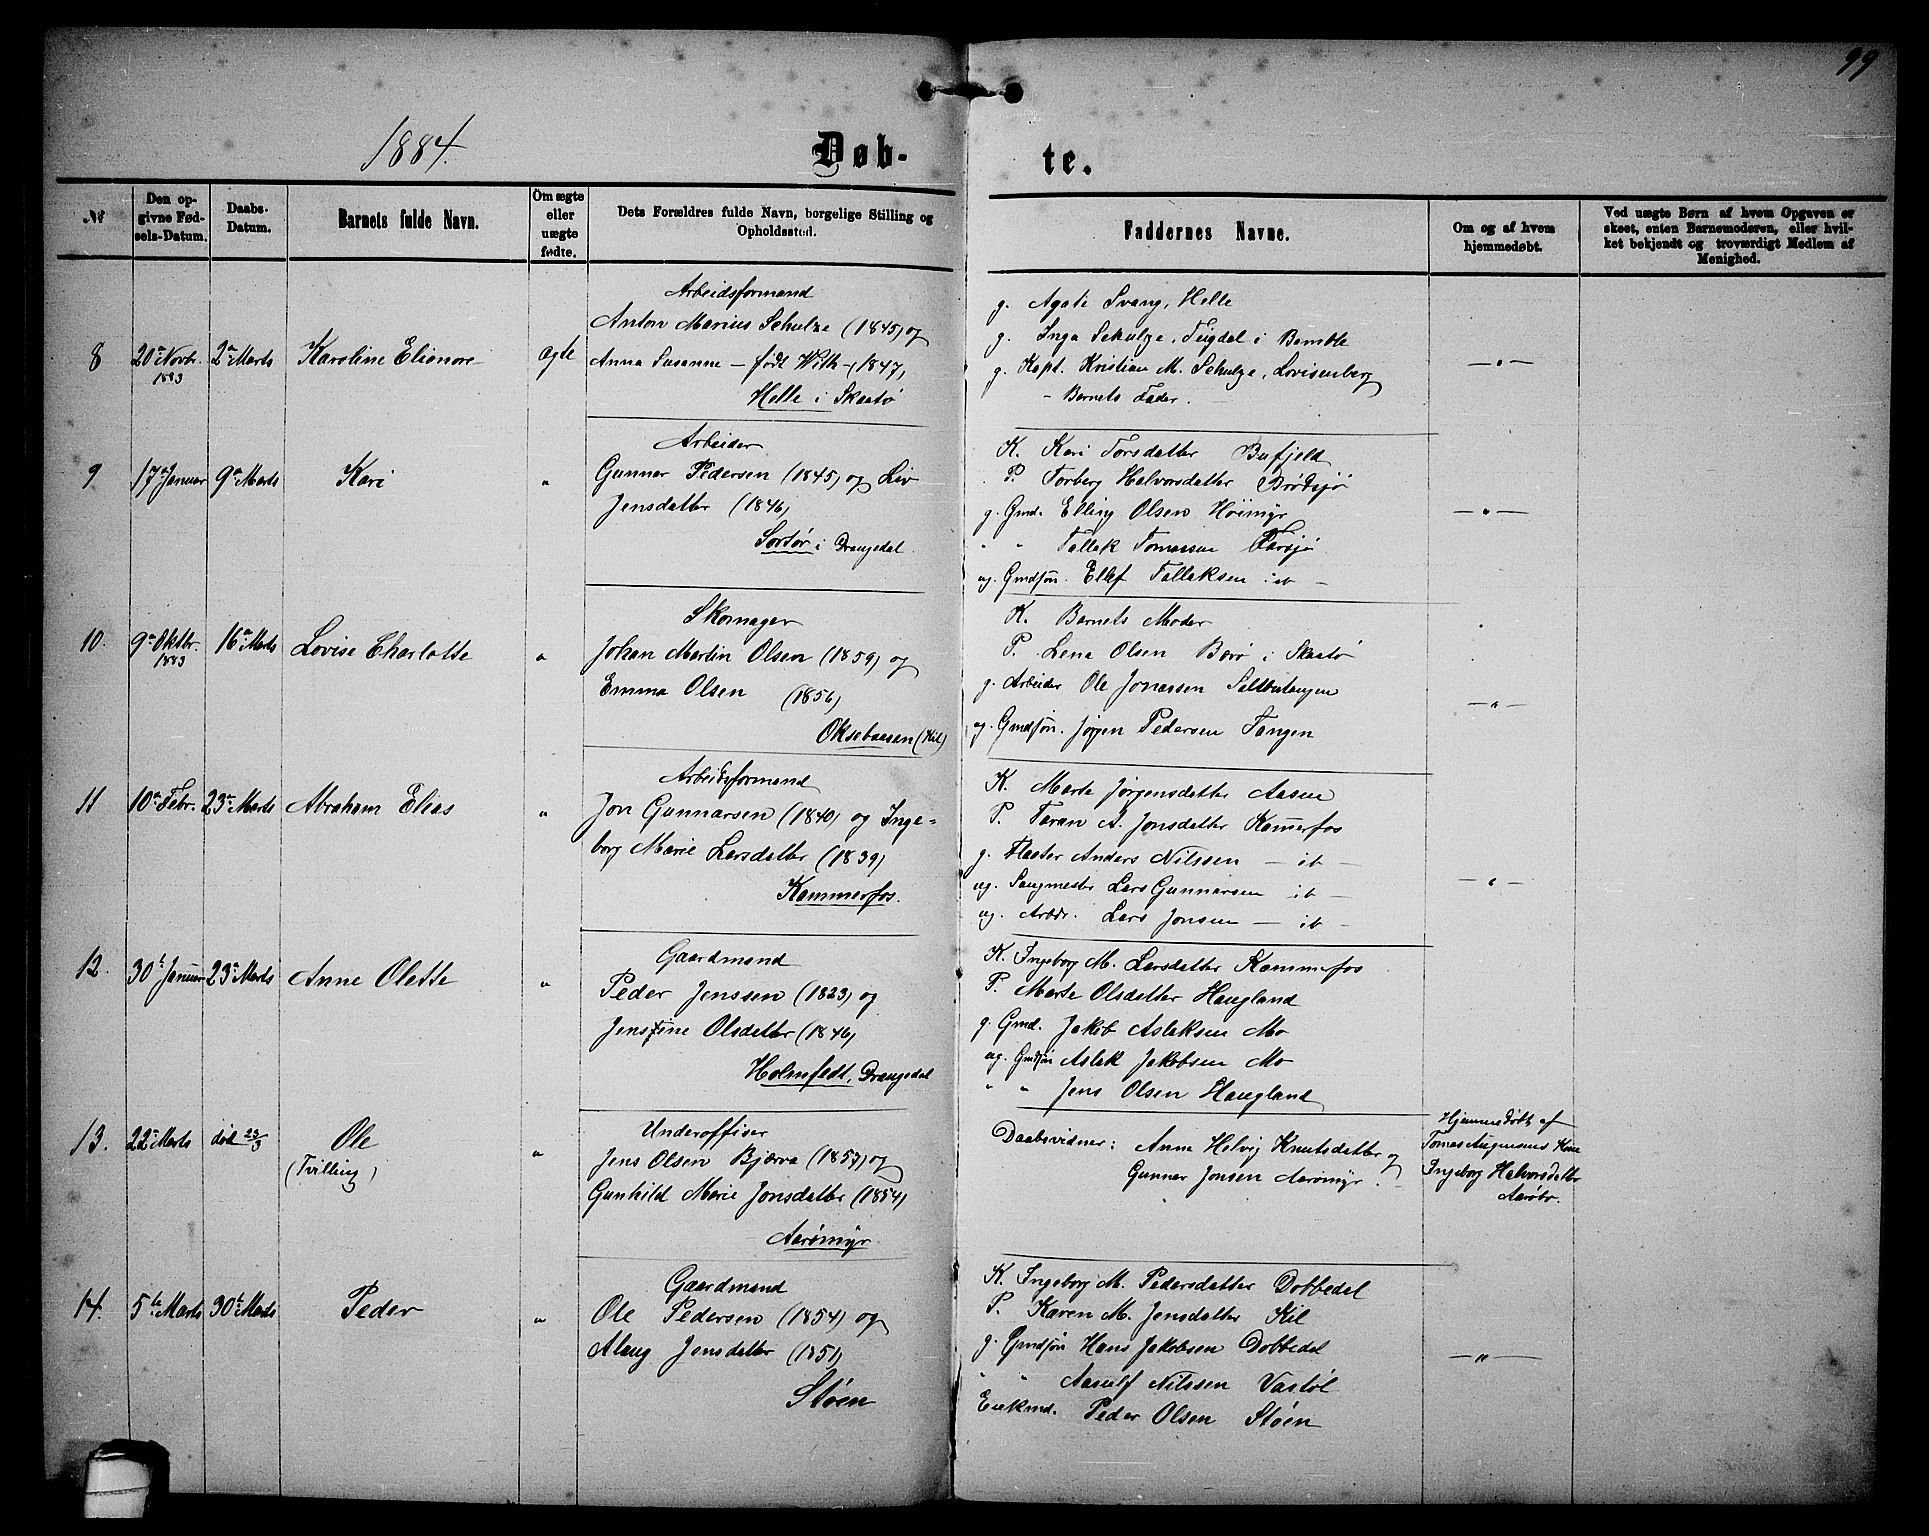 99
1884.
Døb-
te.
№
Den op-
givne Fød-
sels-Datum.
Daabs-
Datum.
Barnets fulde Navn.
Om ægte
eller
uægte
fødte.
Dets Forældres fulde Navn, borgelige Stilling og
Opholdssted.
Faddernes Navne.
Om og af hvem
hjemmedøbt.
Ved uægte Børn af hvem Opgaven er
skeet, enten Barnemoderen, eller hvil-
ket bekjendt og troværdigt Medlem af
Menighed.
8
20de Novbr.
1883
2den Marts
Karoline Elionore
ægte
Arbeidsformand
Anton Marius Schulze (1845) og
Anna Susanne – født With – (1847)
Helle i Skaatø
g. Agate Svang, Helle
g. Inga Schulze, Tugdal i Bamble
g. Kapt. Kristian M. Schulze, Lovisenberg
– Barnets Fader.
– " –
9
17de Januar
9de Marts
Kari
"
Arbeider
Gunnar Pedersen (1845) og Liv
Jensdatter (1846)
Sortør i Drangedal.
K. Kari Torsdatter Bufjeld
P. Torberg Halvorsdatter Brødsjø
g. Gmd. Elling Olsen Høimyr
" " Tallak Tomassen Farsjø
ug. Gmdsøn. Ellef Tallaksen it –
– " –
10.
9de Oktbr.
1883
16de Marts
Lovise Charlotte
"
Skomager
Johan Martin Olsen (1859) og
Emma Olsen (1856)
Oksebaasen (Kil)
K. Barnets Moder
P. Lena Olsen Barø i Skaatø
g. Arbeider Ole Jonassen Saltbutangen
ug. Gmdsøn. Jørgen Pedersen Tangen
– " –
11
10de Febr.
23de Marts
Abraham Elias
"
Arbeidsformand
Jon Gunnarsen (1840) og Inge=
borg Marie Larsdatter (1839)
Kammerfos.
K. Marte Jørgensdatter Aasen
P. Taran A. Jonsdatter Kamerfos
g. Fløter Anders Nilssen – it –
ug. Saugmester Lars Gunnarsen it –
ug. Arbdr. Lars Jonsen – it –
– " –
12.
30te Januar
23de Marts
Anne Olette
"
Gaardmand
Peder Jenssen (1823) og
Jenstine Olsdatter (1846)
Holmfedt, Drangedal
K. Ingeborg M. Larsdatter Kammerfos
P. Marte Olsdatter Haugland
g. Gmd. Jakob Aslaksen Mo
ug. Gmdsøn Aslak Jakobsen Mo
" " Jens Olsen Haugland
13.
22de Marts
død 23/3
Ole
(Tvilling)
"
Underoffiser
Jens Olsen Bjærva (1857) og
Gunhild Marie Jonsdatter (1854)
Aarømyr
Daabsvidner: Anne Helvig Knutsdatter og
Gunnar Jonsen Aarømyr.
Hjemmedøbt af
Tomas Augunsens Kone
Ingeborg Halvorsdatter
Aarøbr.
14.
5te Marts
30te Marts
Peder
"
Gaardmand
Ole Pedersen (1854) og
Alaug Jensdatter (1851)
Støen
K. Ingeborg M. Pedersdatter Dobbedal
P. Karen M. Jensdatter Kil
g. Gmdsøn Hans Jakobsen Dobbedal
" " Aasulf Nilssen Vastøl
Enkmd. Peder Olsen Støen
– " –